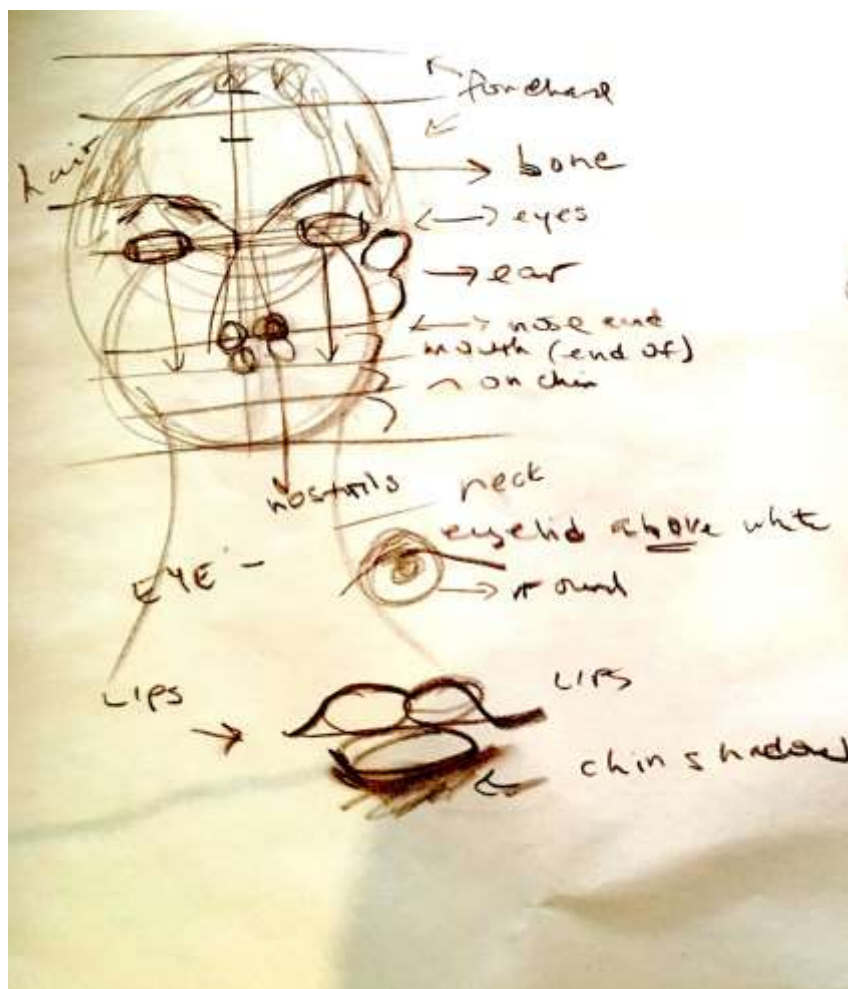 forehead
hair
bone
eyes
ear
nose end
mouth (end of)
on chin
nostrils
neck
eyelid above white
EYE -
round
LIPS
LIPS
chin shadow